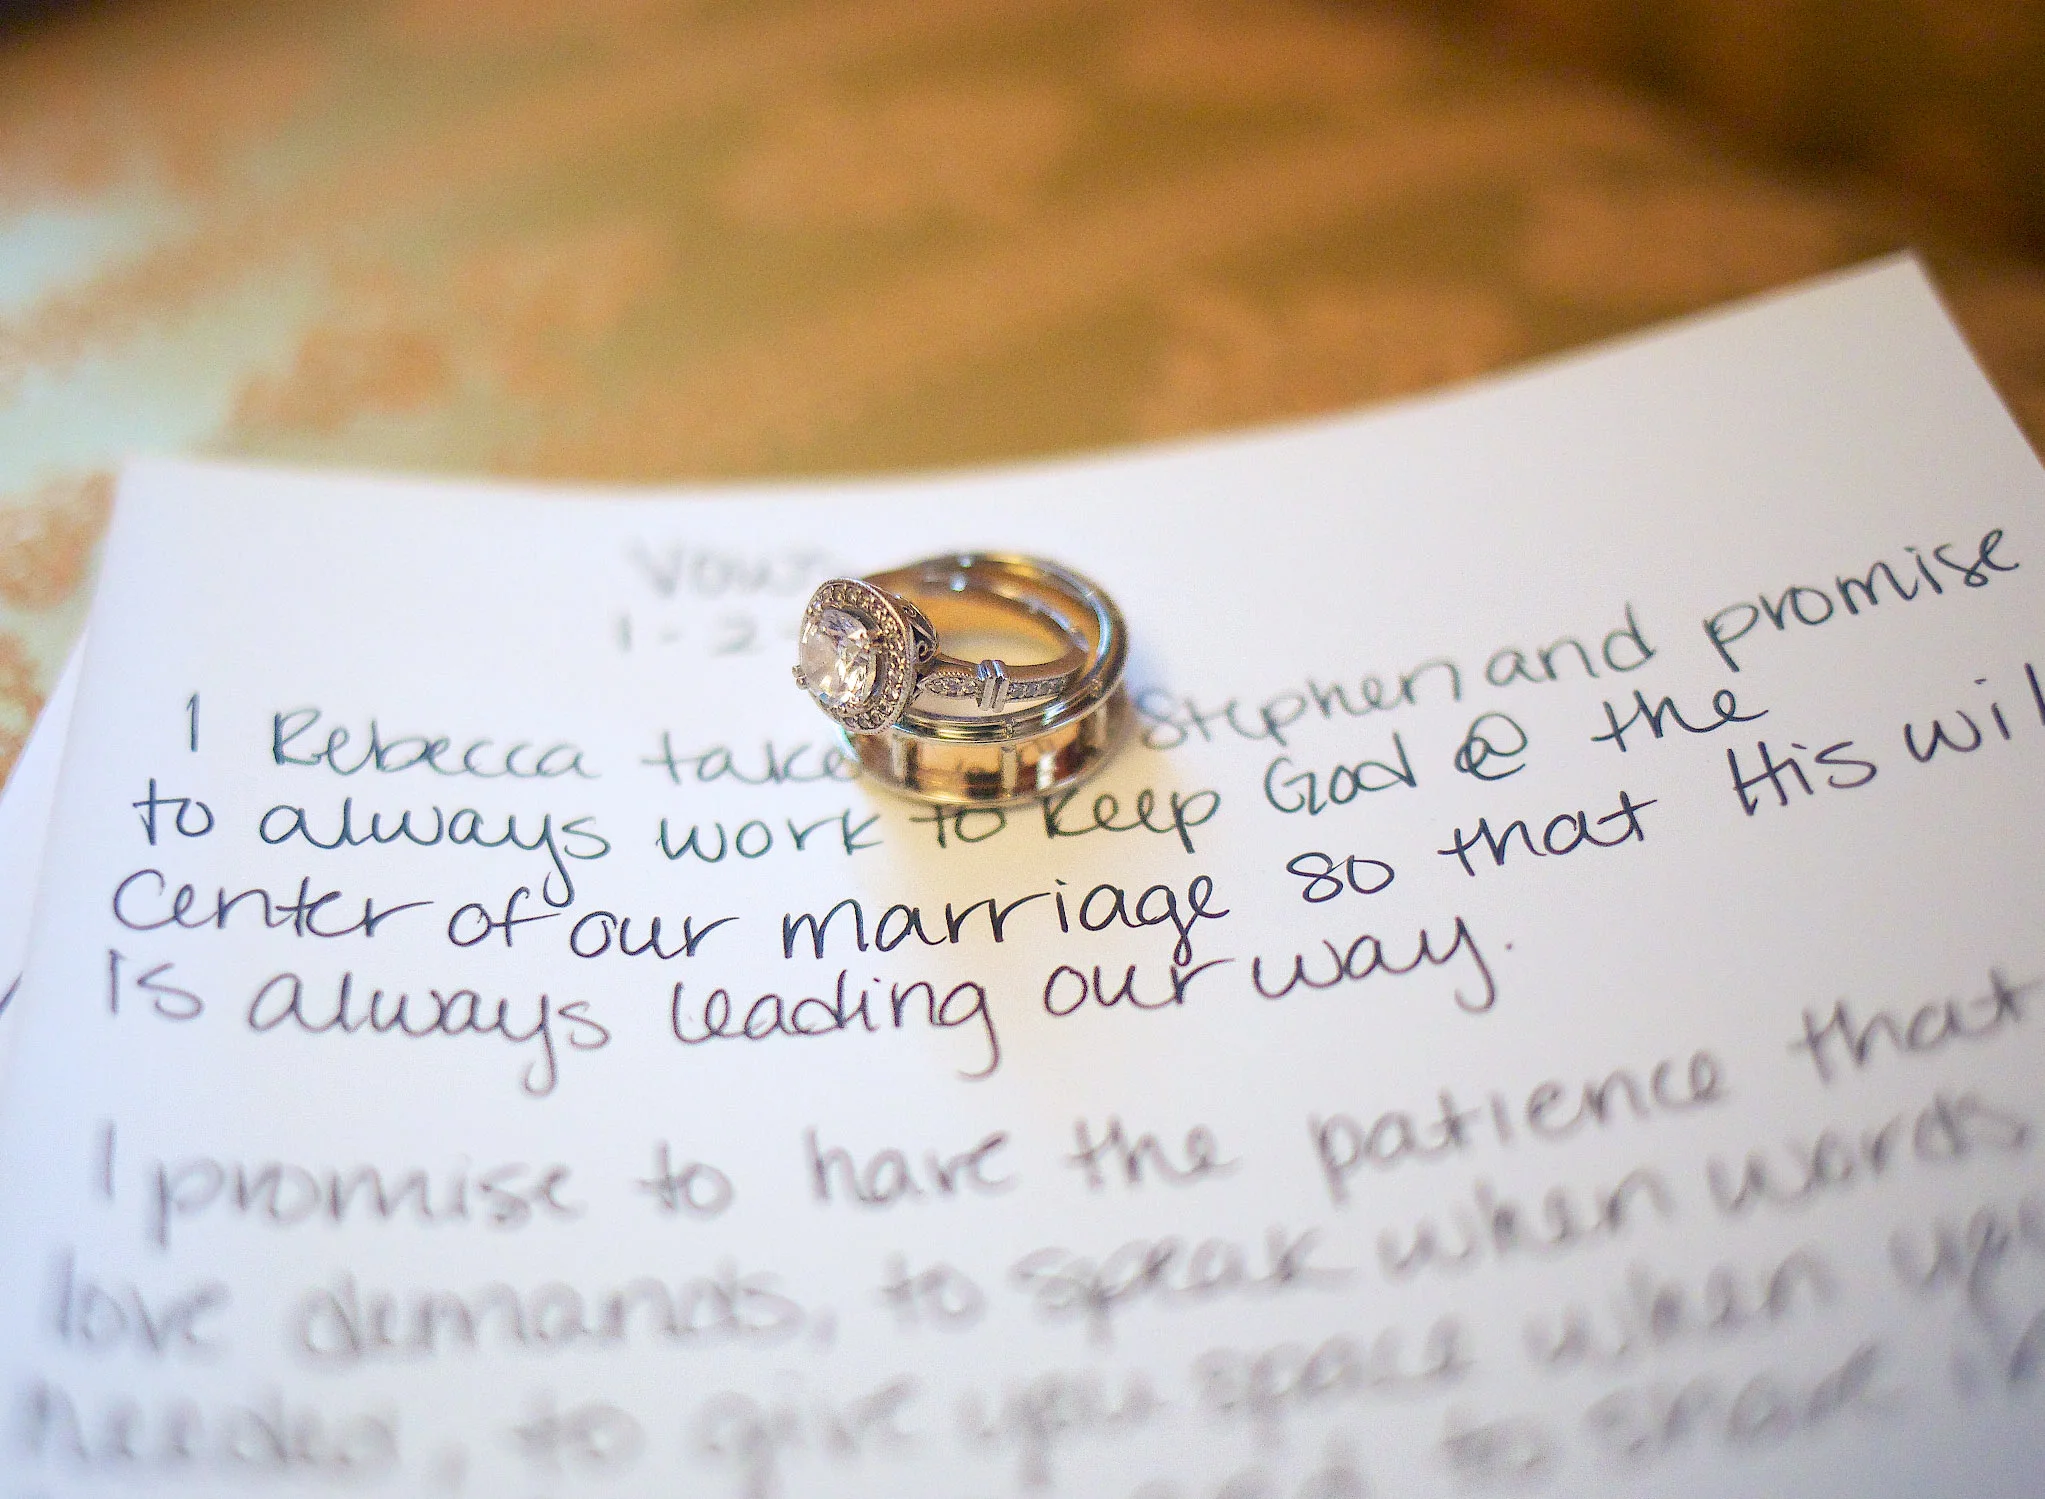 Vows
1-2-
I Rebecca take Stephen and promise
to always work to keep God @ the
Center of our marriage so that His wil
is always leading our way.
I promise to have the patience that
love demands, to speak when words
needed, to give you space when
and to share